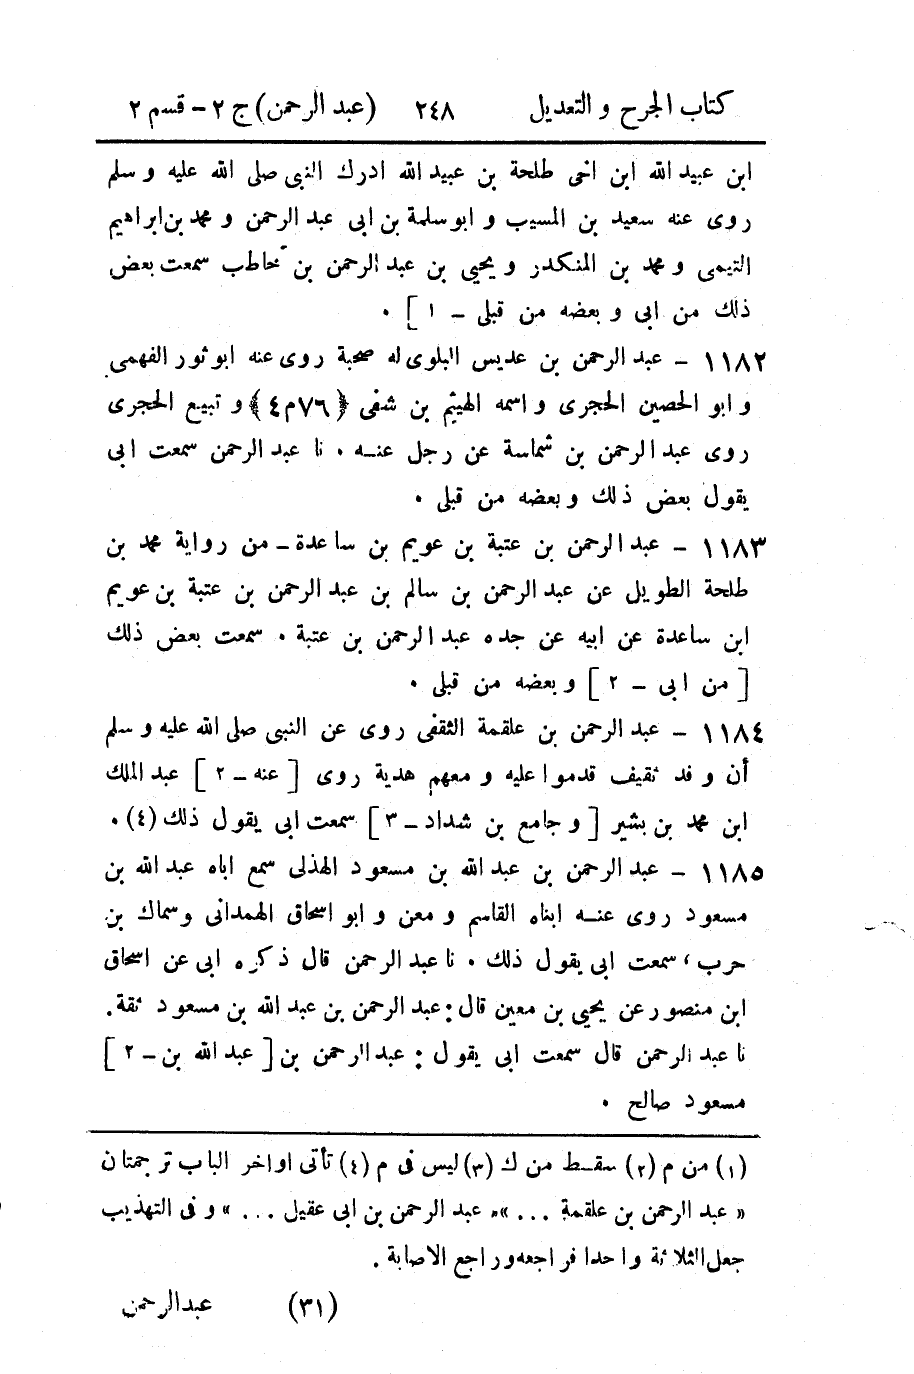 كتاب الجرح و التعديل ٢٤٨ (عبد الرحمن) ج ٢ - قسم ٢
ابن عبيد الله ابن اخى طلحة بن عبيد الله ادرك النبى صلى الله عليه و سلم
روى عنه سعيد بن المسيب و ابو سلمة بن ابى عبد الرحمن و محمد بن ابراهيم
التيمى و محمد بن المنكدر و يحيى بن عبد الرحمن بن حاطب سمعت بعض
ذلك من ابى و بعضه من قبلى - ١ ] .
١١٨٢ - عبد الرحمن بن عديس البلوى له صحبة روى عنه ابو ثور الفهمى
و ابو الحصين الحجرى و اسمه الهيثم بن شفى ﴿٧٦م٤﴾ و تبيع الحجرى
روى عبد الرحمن بن شماسة عن رجل عنه . نا عبد الرحمن سمعت ابى
يقول بعض ذلك و بعضه من قبلى .
١١٨٣ - عبد الرحمن بن عتبة بن عويم بن ساعدة - من رواية محمد بن
طلحة الطويل عن عبد الرحمن بن سالم بن عبد الرحمن بن عتبة بن عويم
ابن ساعدة عن ابيه عن جده عبد الرحمن بن عتبة . سمعت بعض ذلك
[ من ابى - ٢ ] و بعضه من قبلى .
١١٨٤ - عبد الرحمن بن علقمة الثقفى روى عن النبى صلى الله عليه و سلم
أن و فد ثقيف قدموا عليه و معهم هدية روى [ عنه - ٢ ] عبد الملك
ابن محمد بن بشير [ و جامع بن شداد - ٣ ] سمعت ابى يقول ذلك (٤) .
١١٨٥ - عبد الرحمن بن عبد الله بن مسعود الهذلى سمع اباه عبد الله بن
مسعود روى عنه ابناه القاسم و معن و ابو اسحاق الهمدانى وسماك بن
حرب ، سمعت ابى يقول ذلك . نا عبد الرحمن قال ذكره ابى عن اسحاق
ابن منصور عن يحيى بن معين قال : عبد الرحمن بن عبد الله بن مسعود ثقة .
نا عبد الرحمن قال سمعت ابى يقول : عبد الرحمن بن [ عبد الله بن - ٢ ]
مسعود صالح .
(١) من م (٢) سقط من ك (٣) ليس فى م (٤) تأتى اواخر الباب ترجمتان
« عبد الرحمن بن علقمة ... »« عبد الرحمن بن ابى عقيل ... » و فى التهذيب
جعل الثلاثة واحدا فراجعه و راجع الاصابة .
(٣١) عبد الرحمن